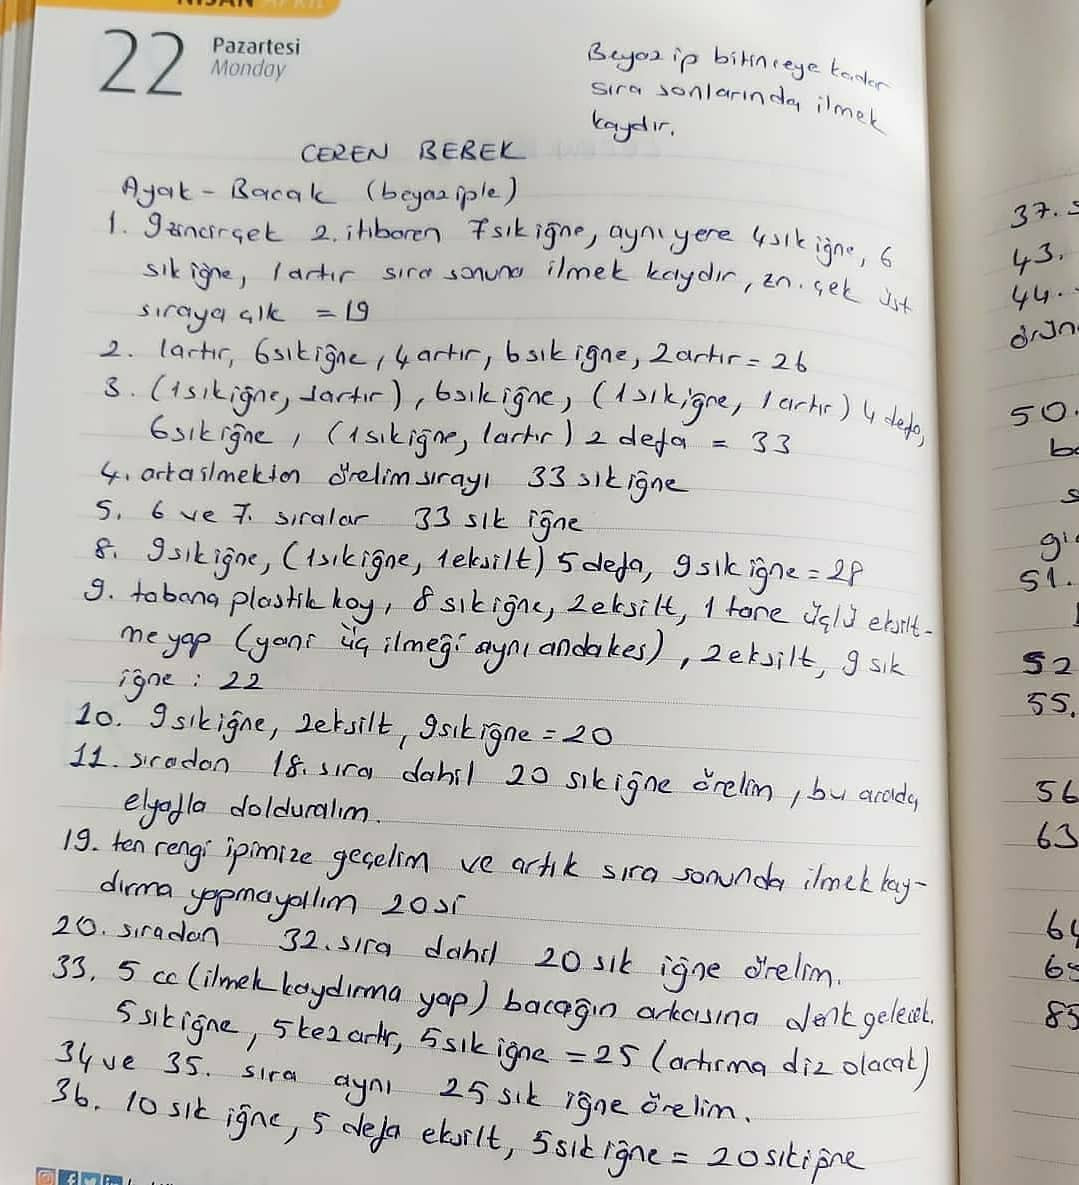 NİSAN APRIL
22 Pazartesi
Monday
Beyaz ip bitinceye kadar
sıra sonlarında ilmek
kaydır.
CEREN BEBEK
Ayak - Bacak (beyaz iple)
1. 9 zincir çek 2. itibaren 7 sık iğne, aynı yere 4 sık iğne, 6
sık iğne, 1 artır sıra sonuna ilmek kaydır, zn. çek üst
sıraya çık = 19
2. 1 artır, 6 sık iğne, 4 artır, 6 sık iğne, 2 artır = 26
3. (1 sık iğne, 1 artır), 6 sık iğne, (1 sık iğne, 1 artır) 4 defa,
6 sık iğne, (1 sık iğne, 1 artır) 2 defa = 33
4. arta ilmekten örelim sırayı 33 sık iğne
5. 6 ve 7. sıralar 33 sık iğne
8. 9 sık iğne, (1 sık iğne, 1 eksilt) 5 defa, 9 sık iğne = 28
9. tabana plastik koy, 8 sık iğne, 2 eksilt, 1 tane üçlü eksilt-
me yap (yani üç ilmeği aynı anda kes), 2 eksilt, 9 sık
iğne : 22
10. 9 sık iğne, 2 eksilt, 9 sık iğne = 20
11. sıradan 18. sıra dahil 20 sık iğne örelim, bu arada
elyafla dolduralım.
19. ten rengi ipimize geçelim ve artık sıra sonunda ilmek kay-
dırma yapmayalım 20 si
20. sıradan 32. sıra dahil 20 sık iğne örelim.
33. 5 cc (ilmek kaydırma yap) bacağın arkasına denk gelecek.
5 sık iğne, 5 kez artır, 5 sık iğne = 25 (artırma diz olacak)
34 ve 35. sıra aynı 25 sık iğne örelim.
36. 10 sık iğne, 5 defa eksilt, 5 sık iğne = 20 sık iğne
37.
43.
44.
50.
51.
52
55.
56
63